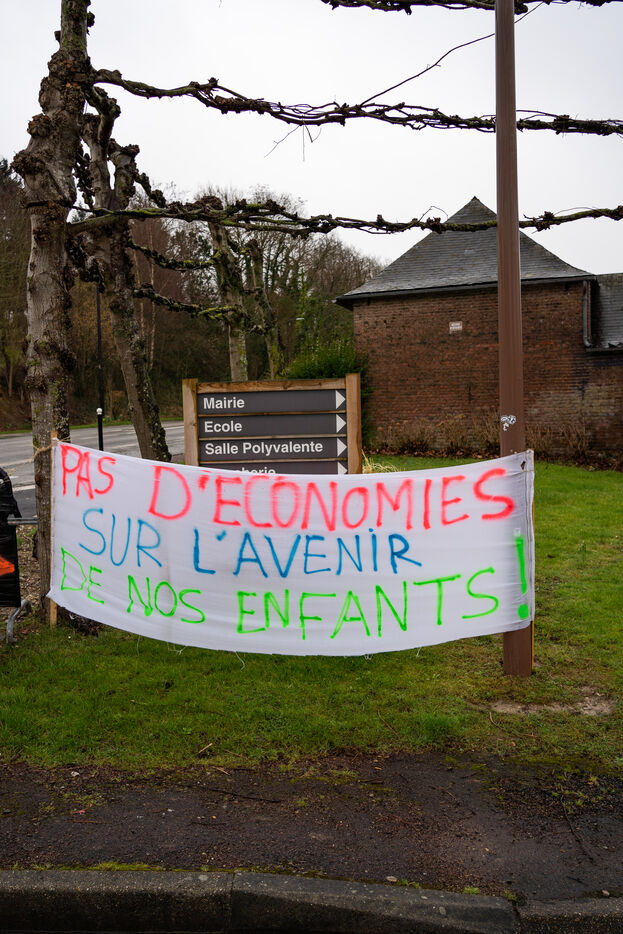 Mairie
Ecole
Salle Polyvalente
PAS D'ECONOMIES
SUR L'AVENIR
DE NOS ENFANTS !